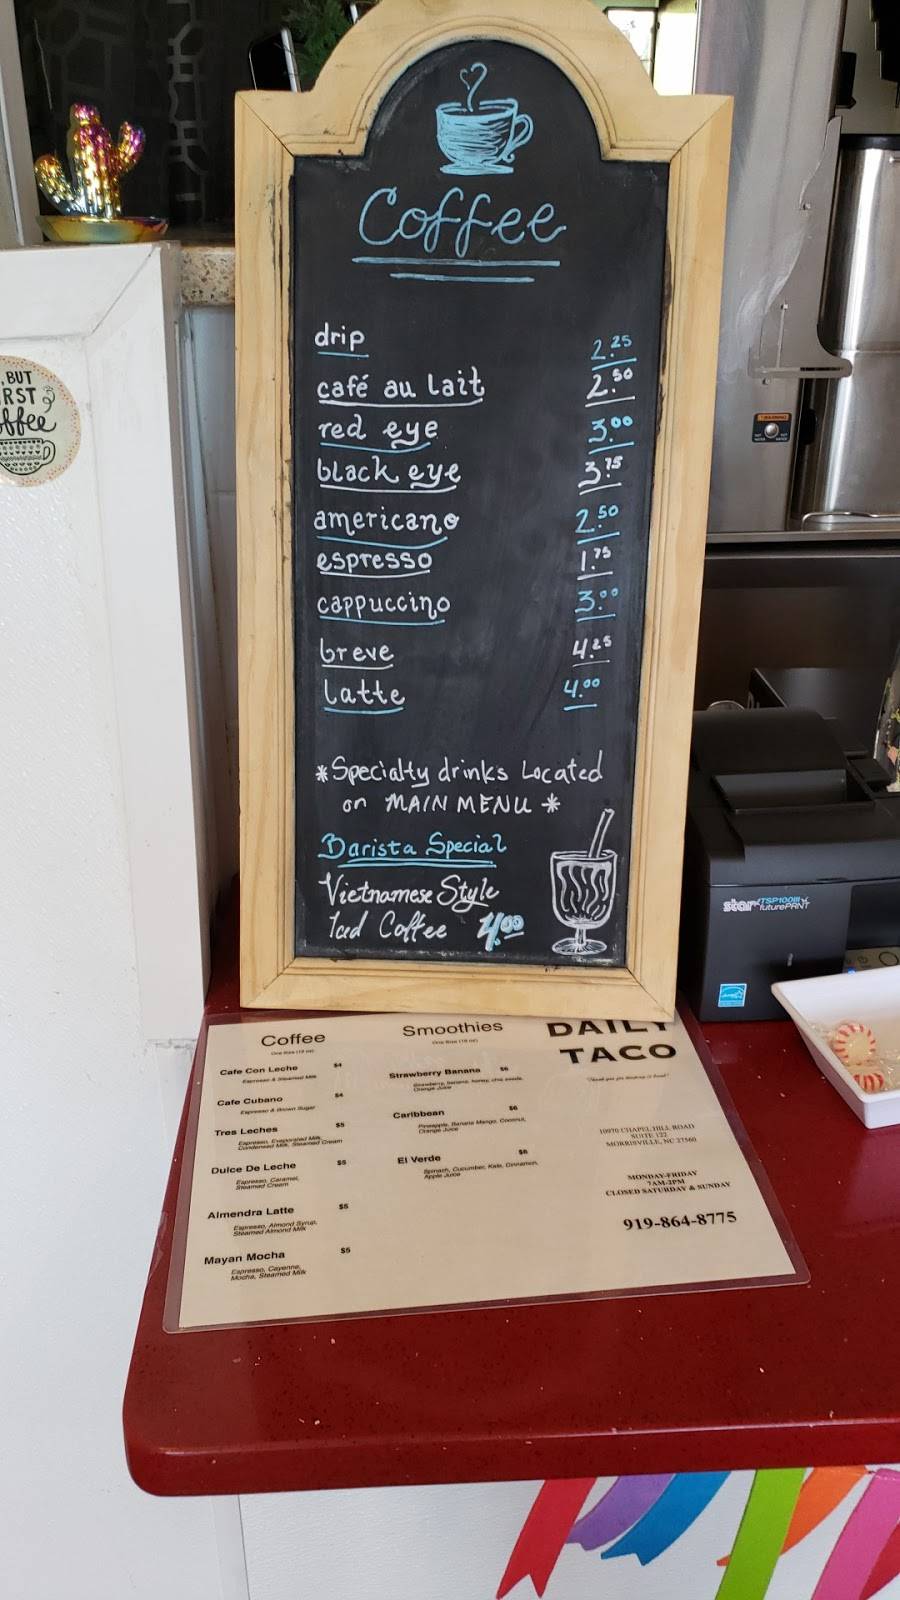 , BUT
RST
ffee
Coffee
drip 2.25
café au lait 2.50
red eye 3.00
black eye 3.75
americano 2.50
espresso 1.75
cappuccino 3.00
breve 4.25
latte 4.00
*Specialty drinks Located
on MAIN MENU *
Barista Special
Vietnamese Style
Iced Coffee 4.00
star TSP100III
futurePRNT
Coffee
One Size (16 oz)
Cafe Con Leche $4
Espresso & Steamed Milk
Cafe Cubano $4
Espresso & Brown Sugar
Tres Leches $5
Espresso, Evaporated Milk,
Condensed Milk, Steamed Cream
Dulce De Leche $5
Espresso, Caramel,
Steamed Cream
Almendra Latte $5
Espresso, Almond Syrup,
Steamed Almond Milk
Mayan Mocha $5
Espresso, Cayenne,
Mocha, Steamed Milk
Smoothies
One Size (16 oz)
Strawberry Banana $6
Strawberry, banana, honey, chia seeds,
Orange Juice
Caribbean $6
Pineapple, Banana Mango, Coconut,
Orange Juice
El Verde $6
Spinach, Cucumber, Kale, Cinnamon,
Apple Juice
DAILY
TACO
10970 CHAPEL HILL ROAD
SUITE 122
MORRISVILLE, NC 27560
MONDAY-FRIDAY
7AM-2PM
CLOSED SATURDAY & SUNDAY
919-864-8775